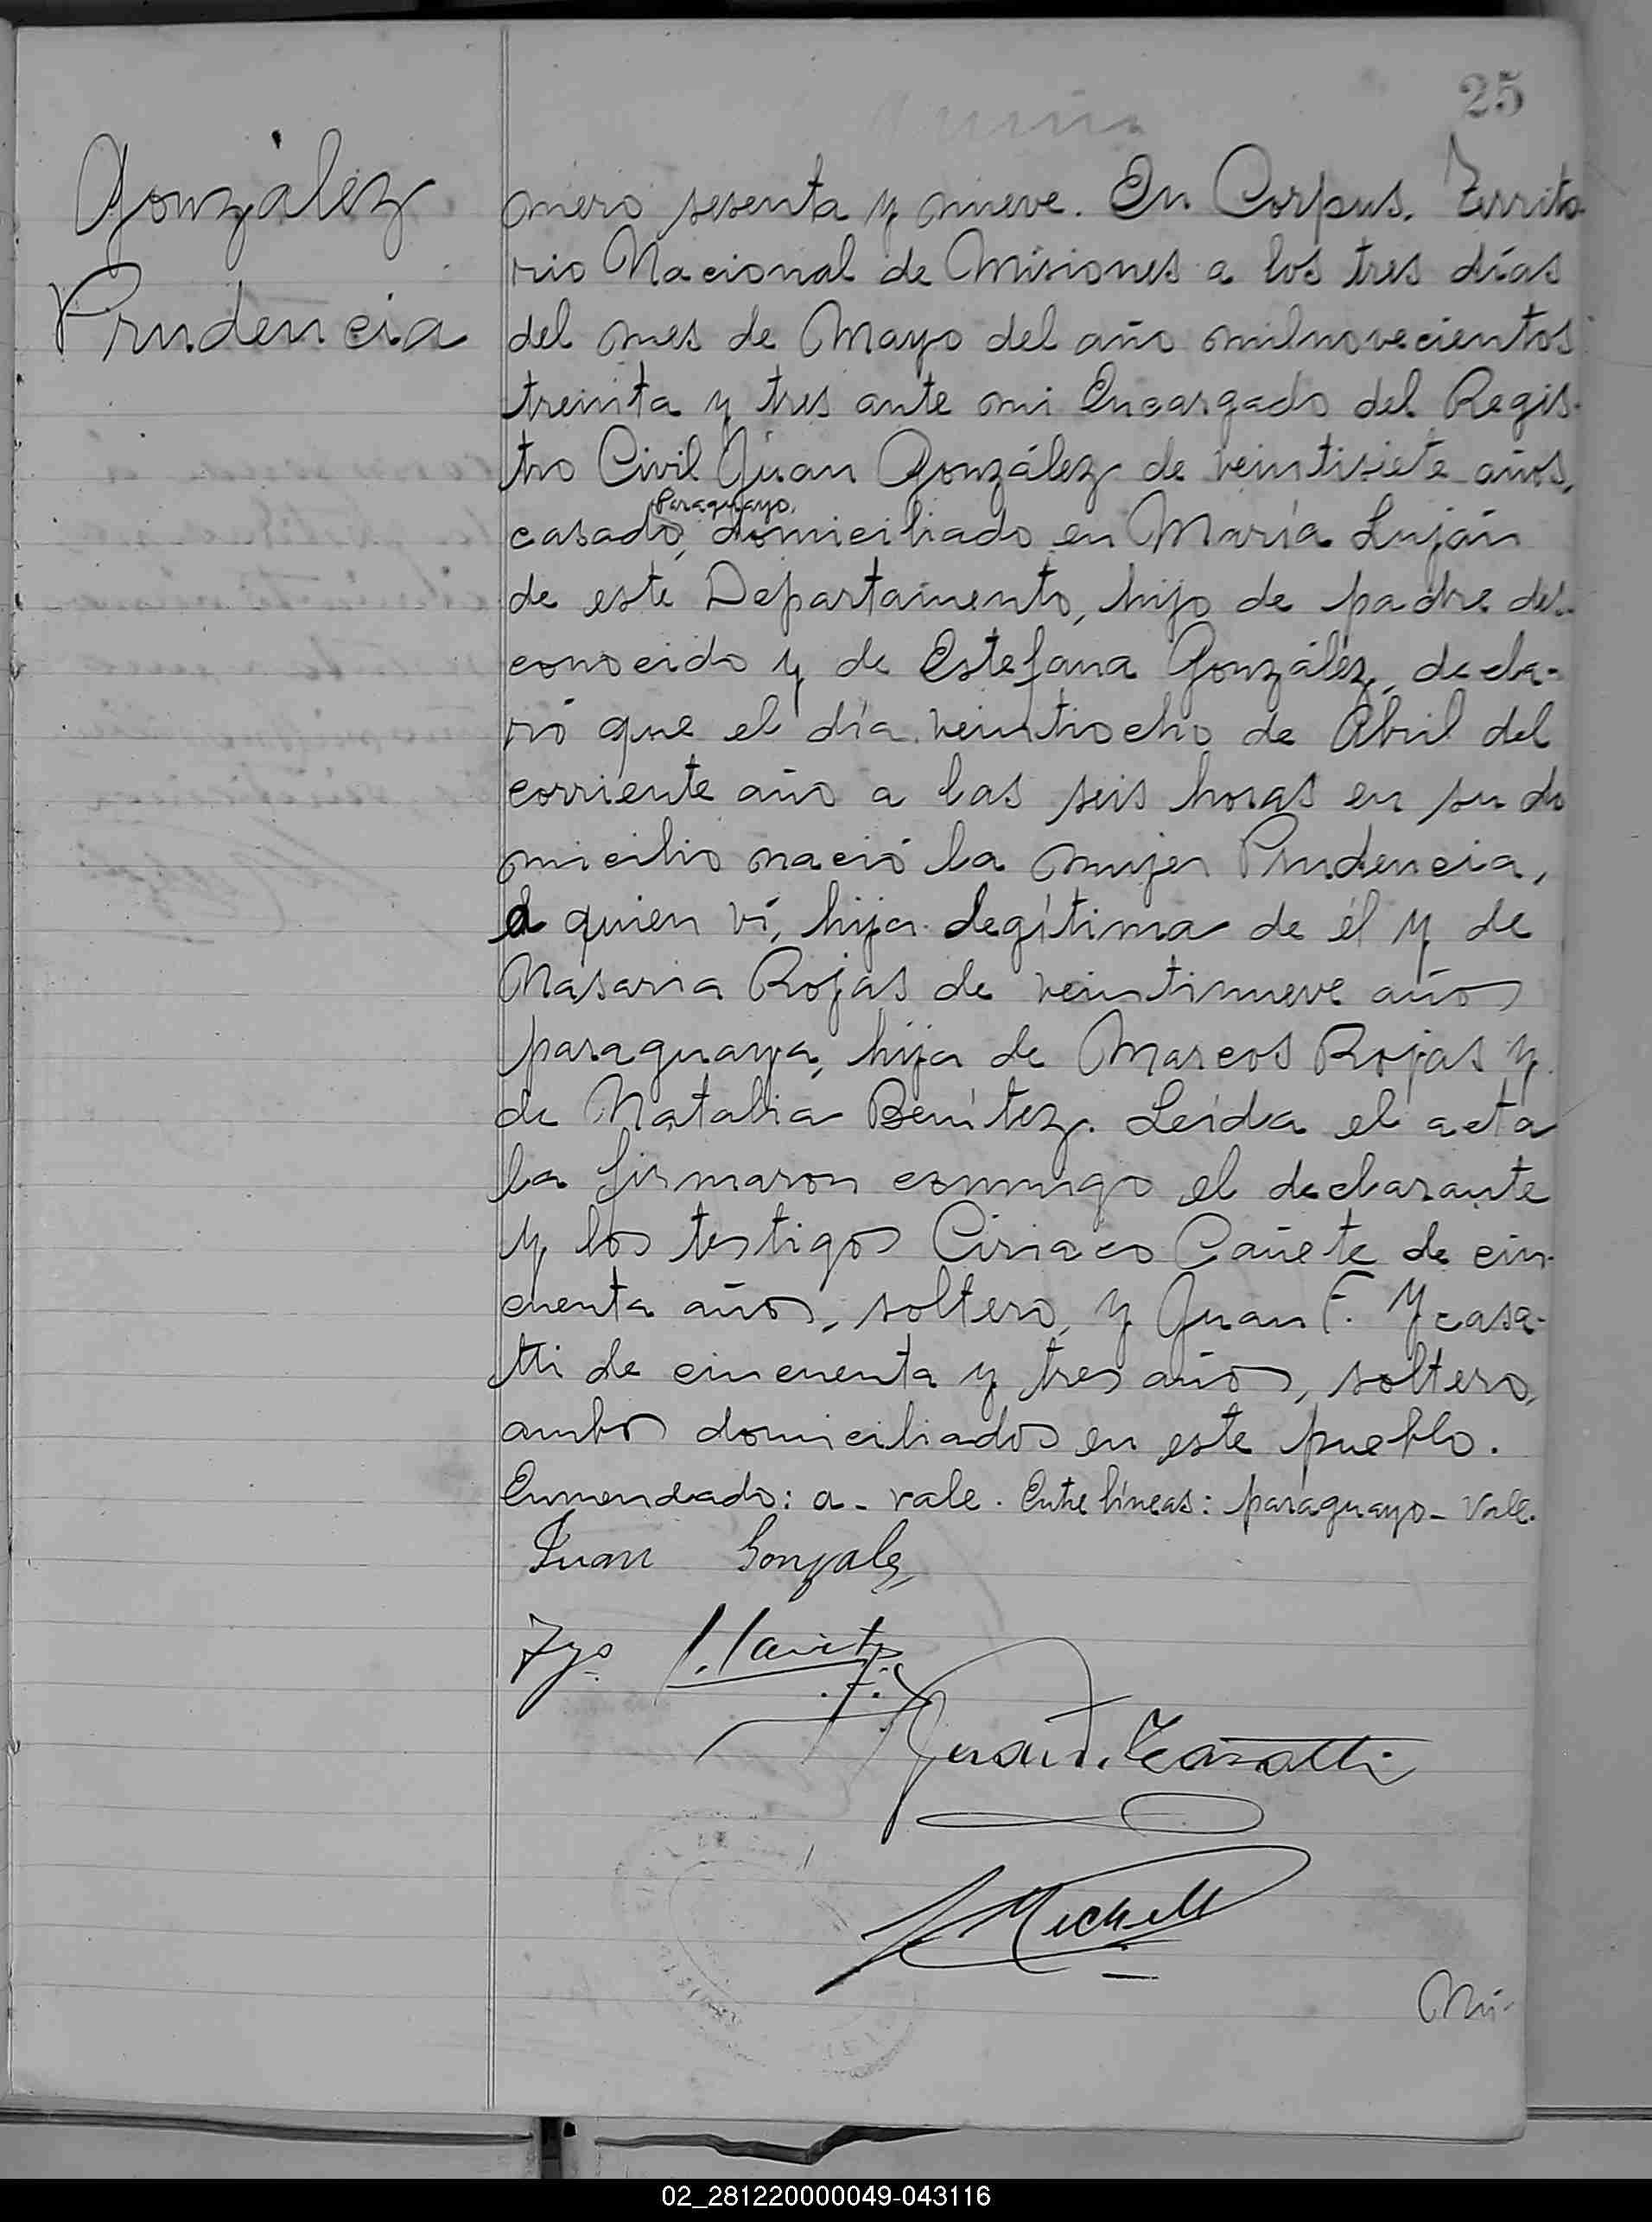 25
González
Prudencia
mero sesenta y nueve. En Corpus, Territo-
rio Nacional de Misiones a los tres días
del mes de Mayo del año milnovecientos
treinta y tres ante mi Encargado del Regis-
tro Civil Juan González de veintisiete años,
Paraguayo,
casado, domiciliado en María Luján
de este Departamento, hijo de padre des-
conocido y de Estefana González, decla-
ró que el día veintiocho de Abril del
corriente año a las seis horas en su do
micilio nació la mujer Prudencia,
a quien ví, hija legítima de él y de
Nasaria Rojas de veintinueve años
paraguaya, hija de Marcos Rojas y
de Natalia Benítez. Leída el acta
la firmaron conmigo el declarante
y los testigos Ciriaco Cañete de cin-
cuenta años, soltero, y Juan F. Ycasa-
tti de cincuenta y tres años, soltero,
ambos domiciliados en este pueblo.
Enmendado: a - vale. Entre líneas: paraguayo - Vale.
Juan Gonzalez
Tgo
Juan F. Ycasatti
Nú-
02_281220000049-043116